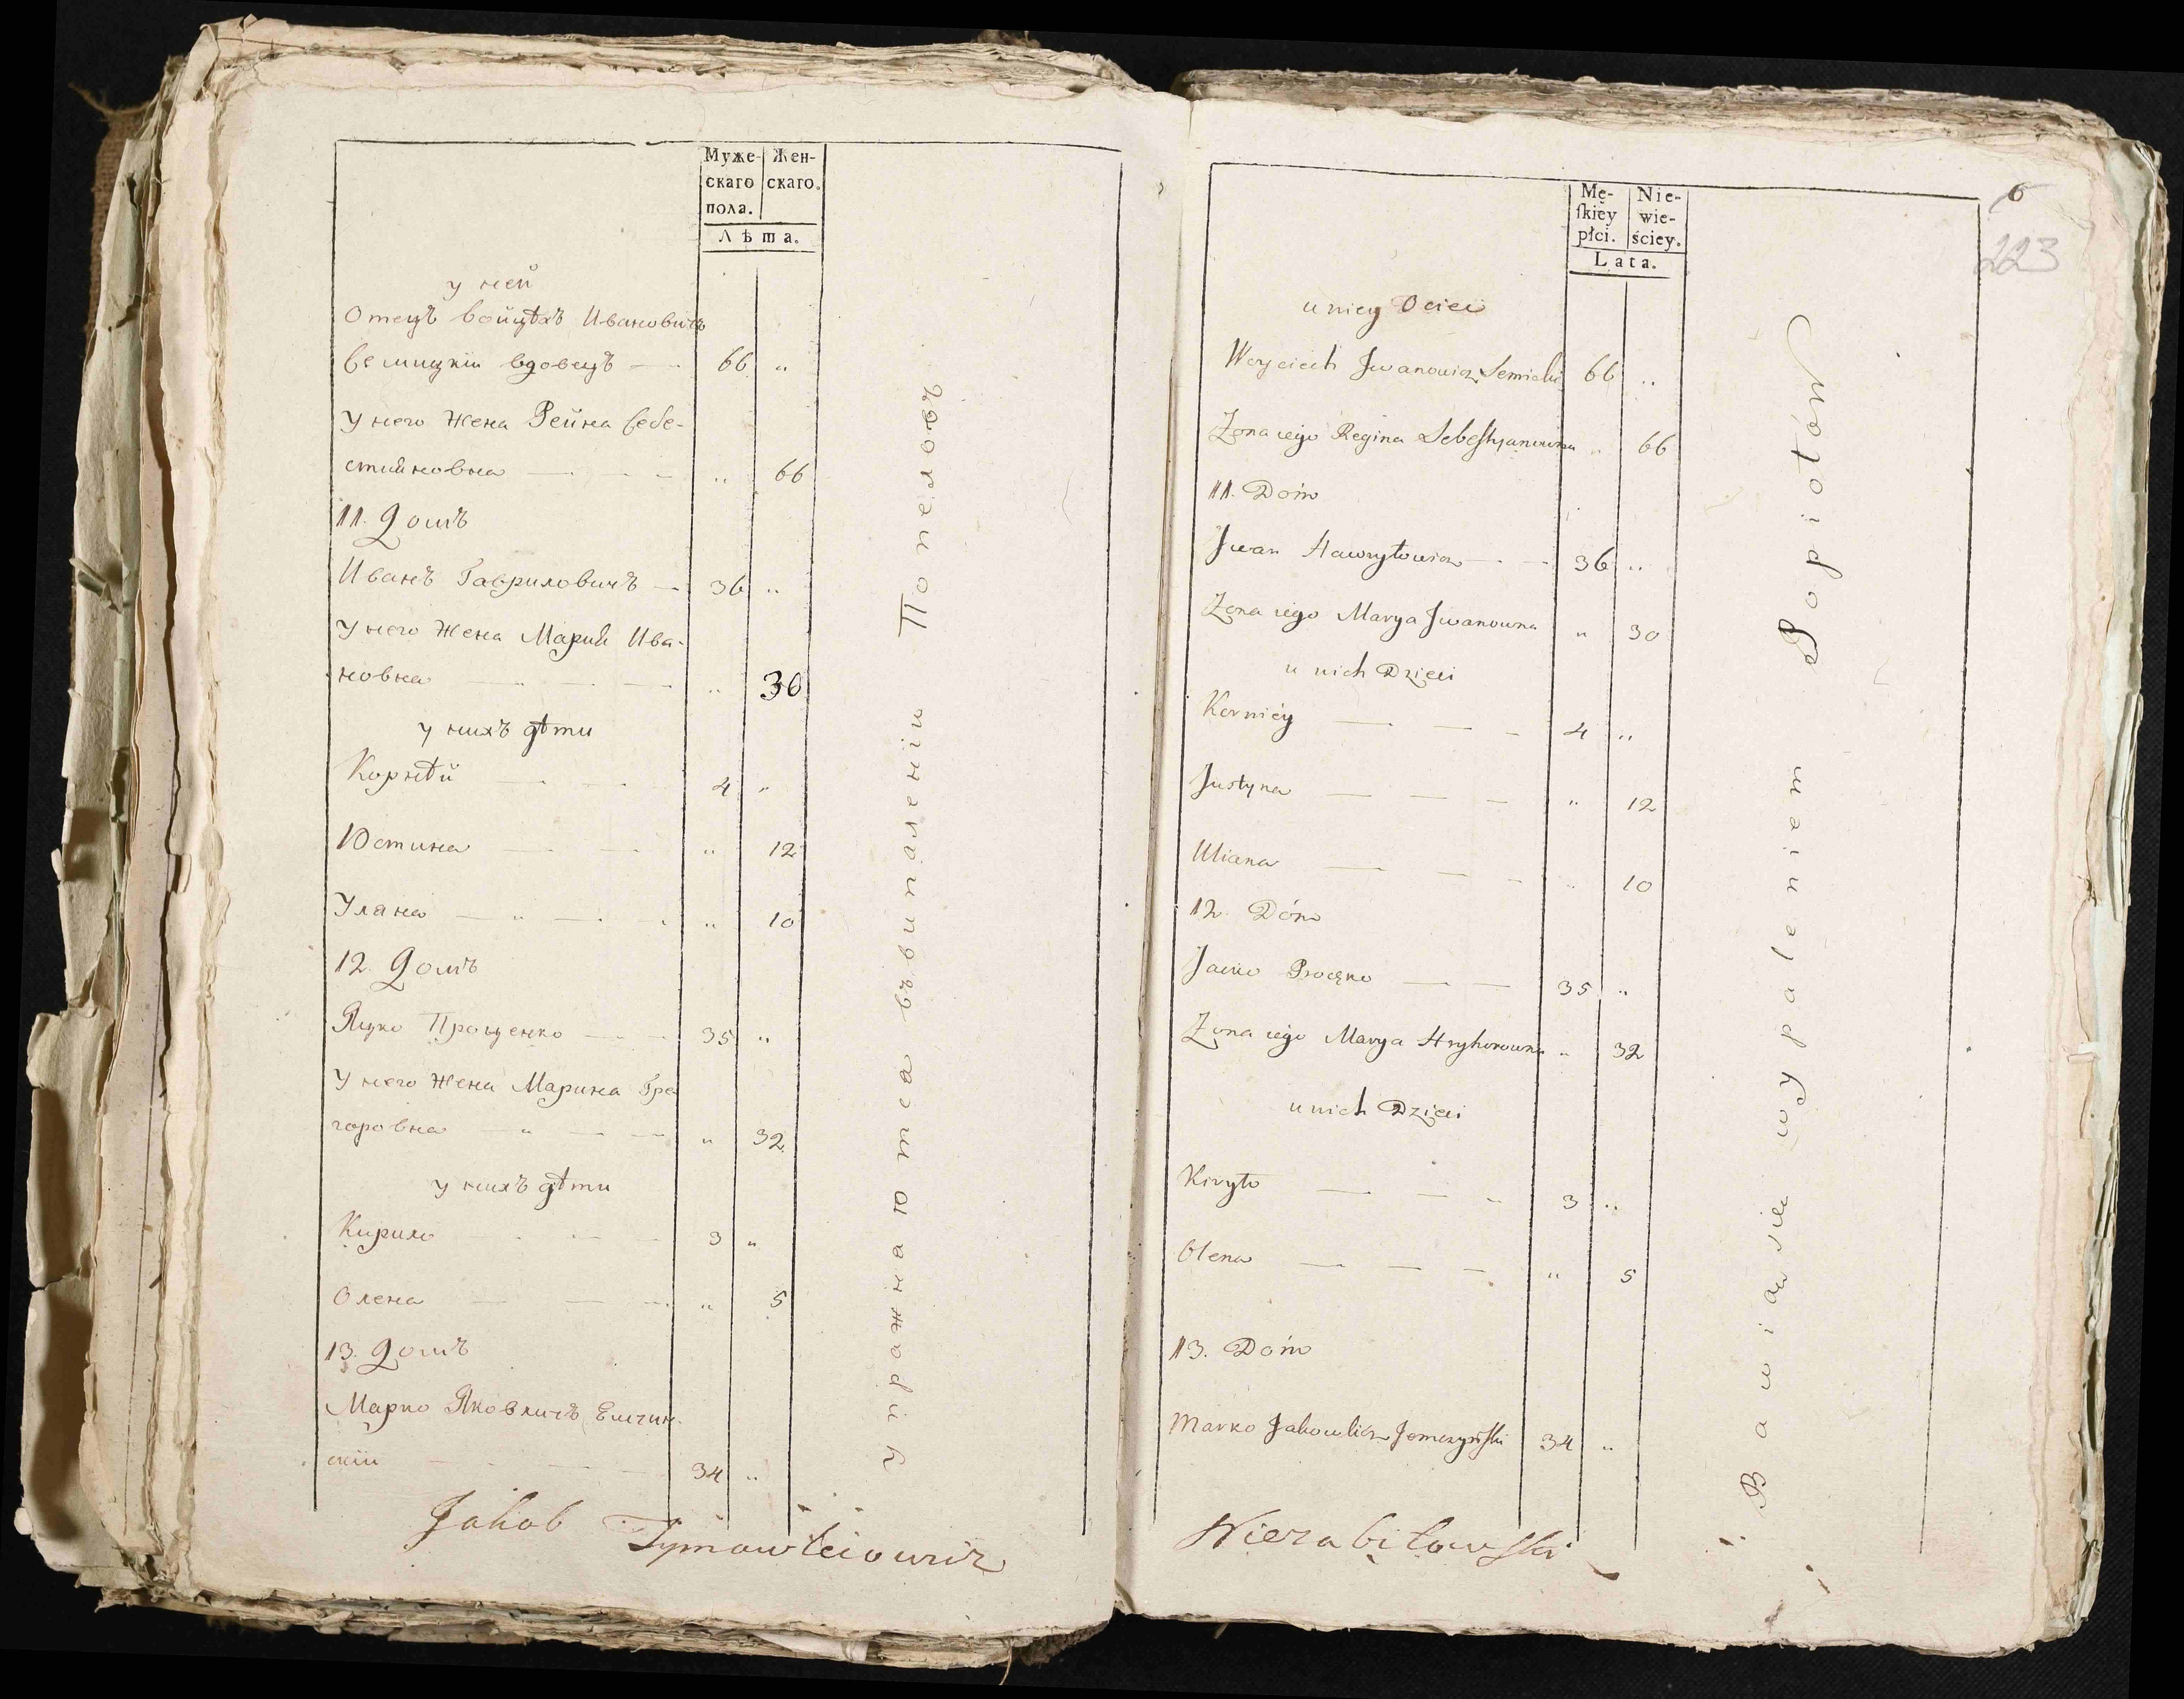 Муже- Жен-
скаго скаго.
пола.
Лѣта.
у ней
Отецъ Войцѣхъ Ивановичъ
Семицкій вдовецъ — 66 "
У него Жена Рейна Себе-
стияновна — " 66
11. Домъ
Иванъ Гавриловичъ — 36 "
У него Жена Мария Ива-
новна — " 30
у нихъ дѣти
Корнѣй 4 "
Юстина " 12
Уляна " 10
12. Домъ
Яцко Проценко 35 "
У него Жена Марина Гре
горовна " 32
у нихъ дѣти
Кирило 3 "
Олена " 5
13. Домъ
Марко Яковличъ Емчин-
скій 34 "
упражнаютса въвипаленіи Попеловъ
Jakob Tymowkiowicz
6
223
Mę- Nie-
ſkiey wie-
płci. ściey.
Lata.
u niey Ociec
Woyciech Jwanowicz Semicki 66 "
Zona iego Regina Sebeſtyanowna " 66
11. Dom
Jwan Hawryłowicz — 36 "
Zona iego Marya Jwanowna " 30
u nich Dzieci
Korniey 4 "
Justyna " 12
Uliana " 10
12. Dóm
Jacko Procęko 35 "
Zona iego Marya Hryhorowna " 32
u nich Dzieci
Kiryło 3 "
Olena " 5
13. Dom
Marko Jakowlicz Jemczynſki 34 "
Bawiaw sieu wypaleniem Popiołów
Wierabiłowſki